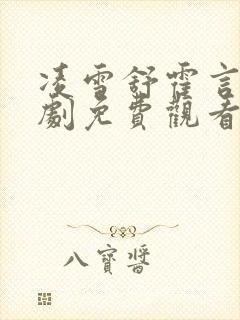 凌雪舒霍言
劇免費觀看
八寶醬